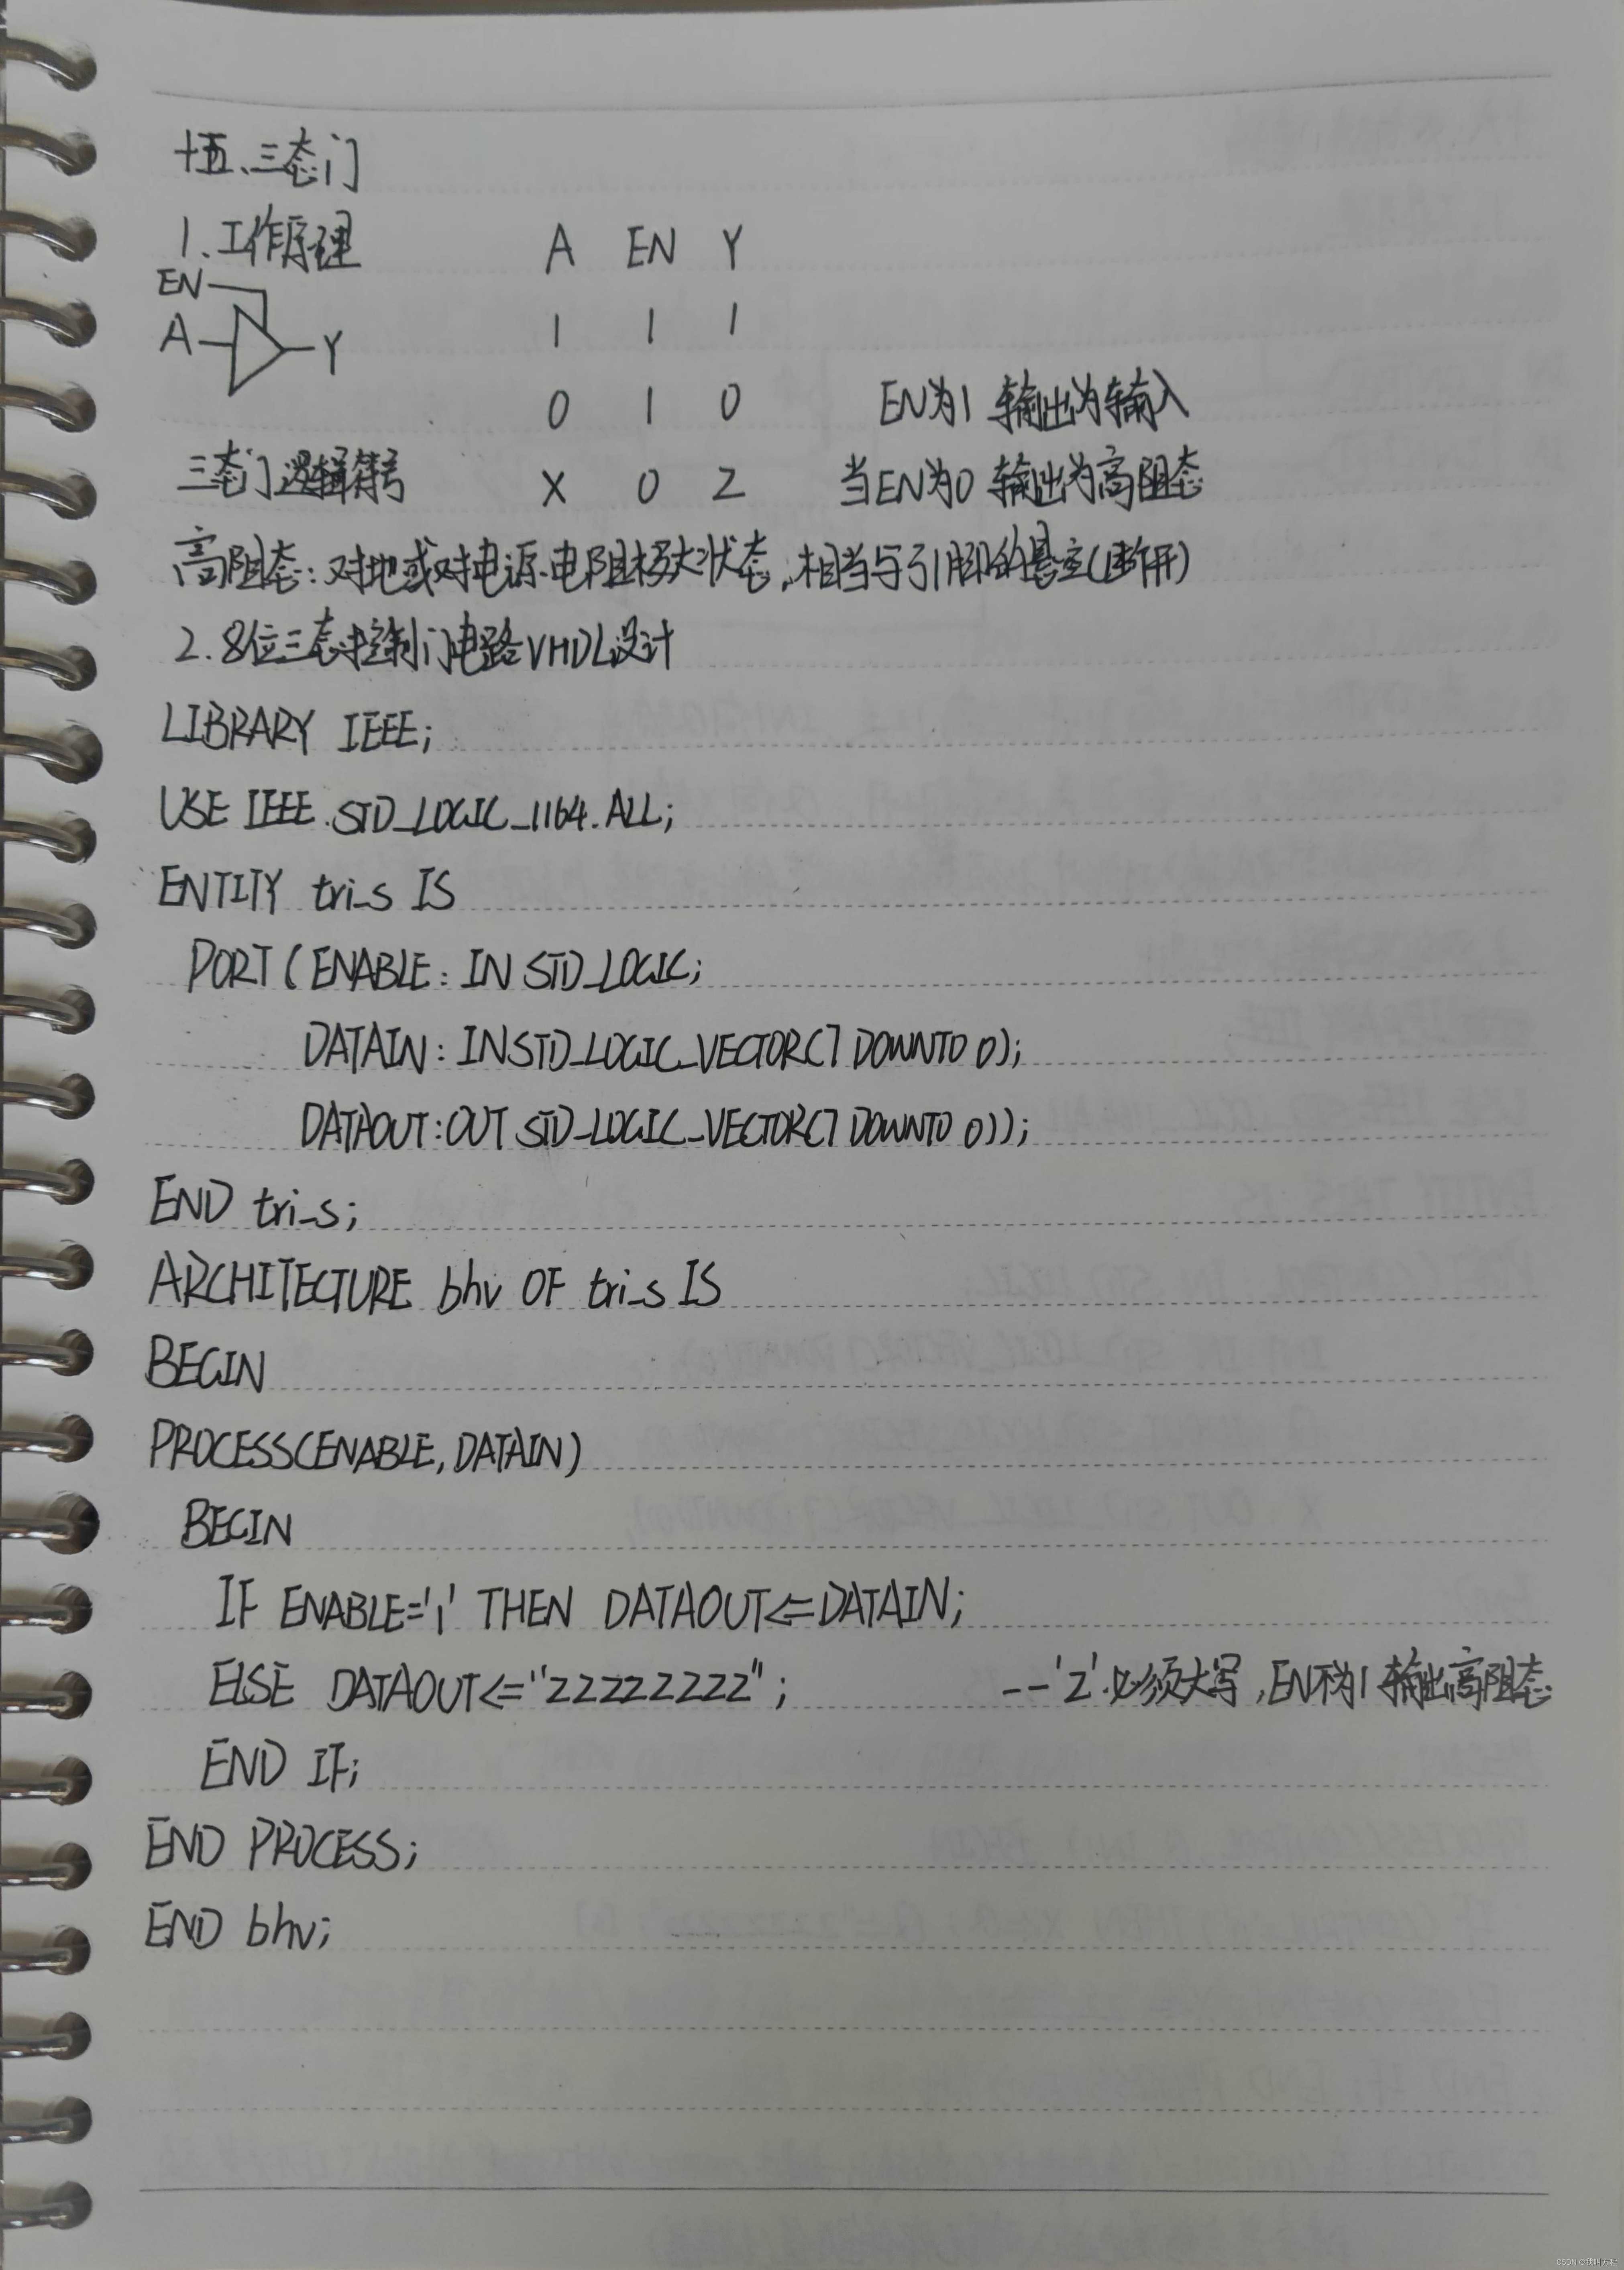 十五、三态门
1.工作原理
A EN Y
EN
A Y
1 1 1
0 1 0 EN为1 输出为输入
三态门逻辑符号 X 0 Z 当EN为0 输出为高阻态
高阻态:对地或对电源电阻极大状态,相当与引脚的悬空(断开)
2.8位三态控制门电路VHDL设计
LIBRARY IEEE;
USE IEEE.STD_LOGIC_1164.ALL;
ENTITY tri_s IS
PORT(ENABLE: IN STD_LOGIC;
DATAIN: IN STD_LOGIC_VECTOR(7 DOWNTO 0);
DATAOUT:OUT STD_LOGIC_VECTOR(7 DOWNTO 0));
END tri_s;
ARCHITECTURE bhv OF tri_s IS
BEGIN
PROCESS(ENABLE,DATAIN)
BEGIN
IF ENABLE='1' THEN DATAOUT<=DATAIN;
ELSE DATAOUT<="ZZZZZZZZ"; --'Z'必须大写,EN不为1 输出高阻态
END IF;
END PROCESS;
END bhv;